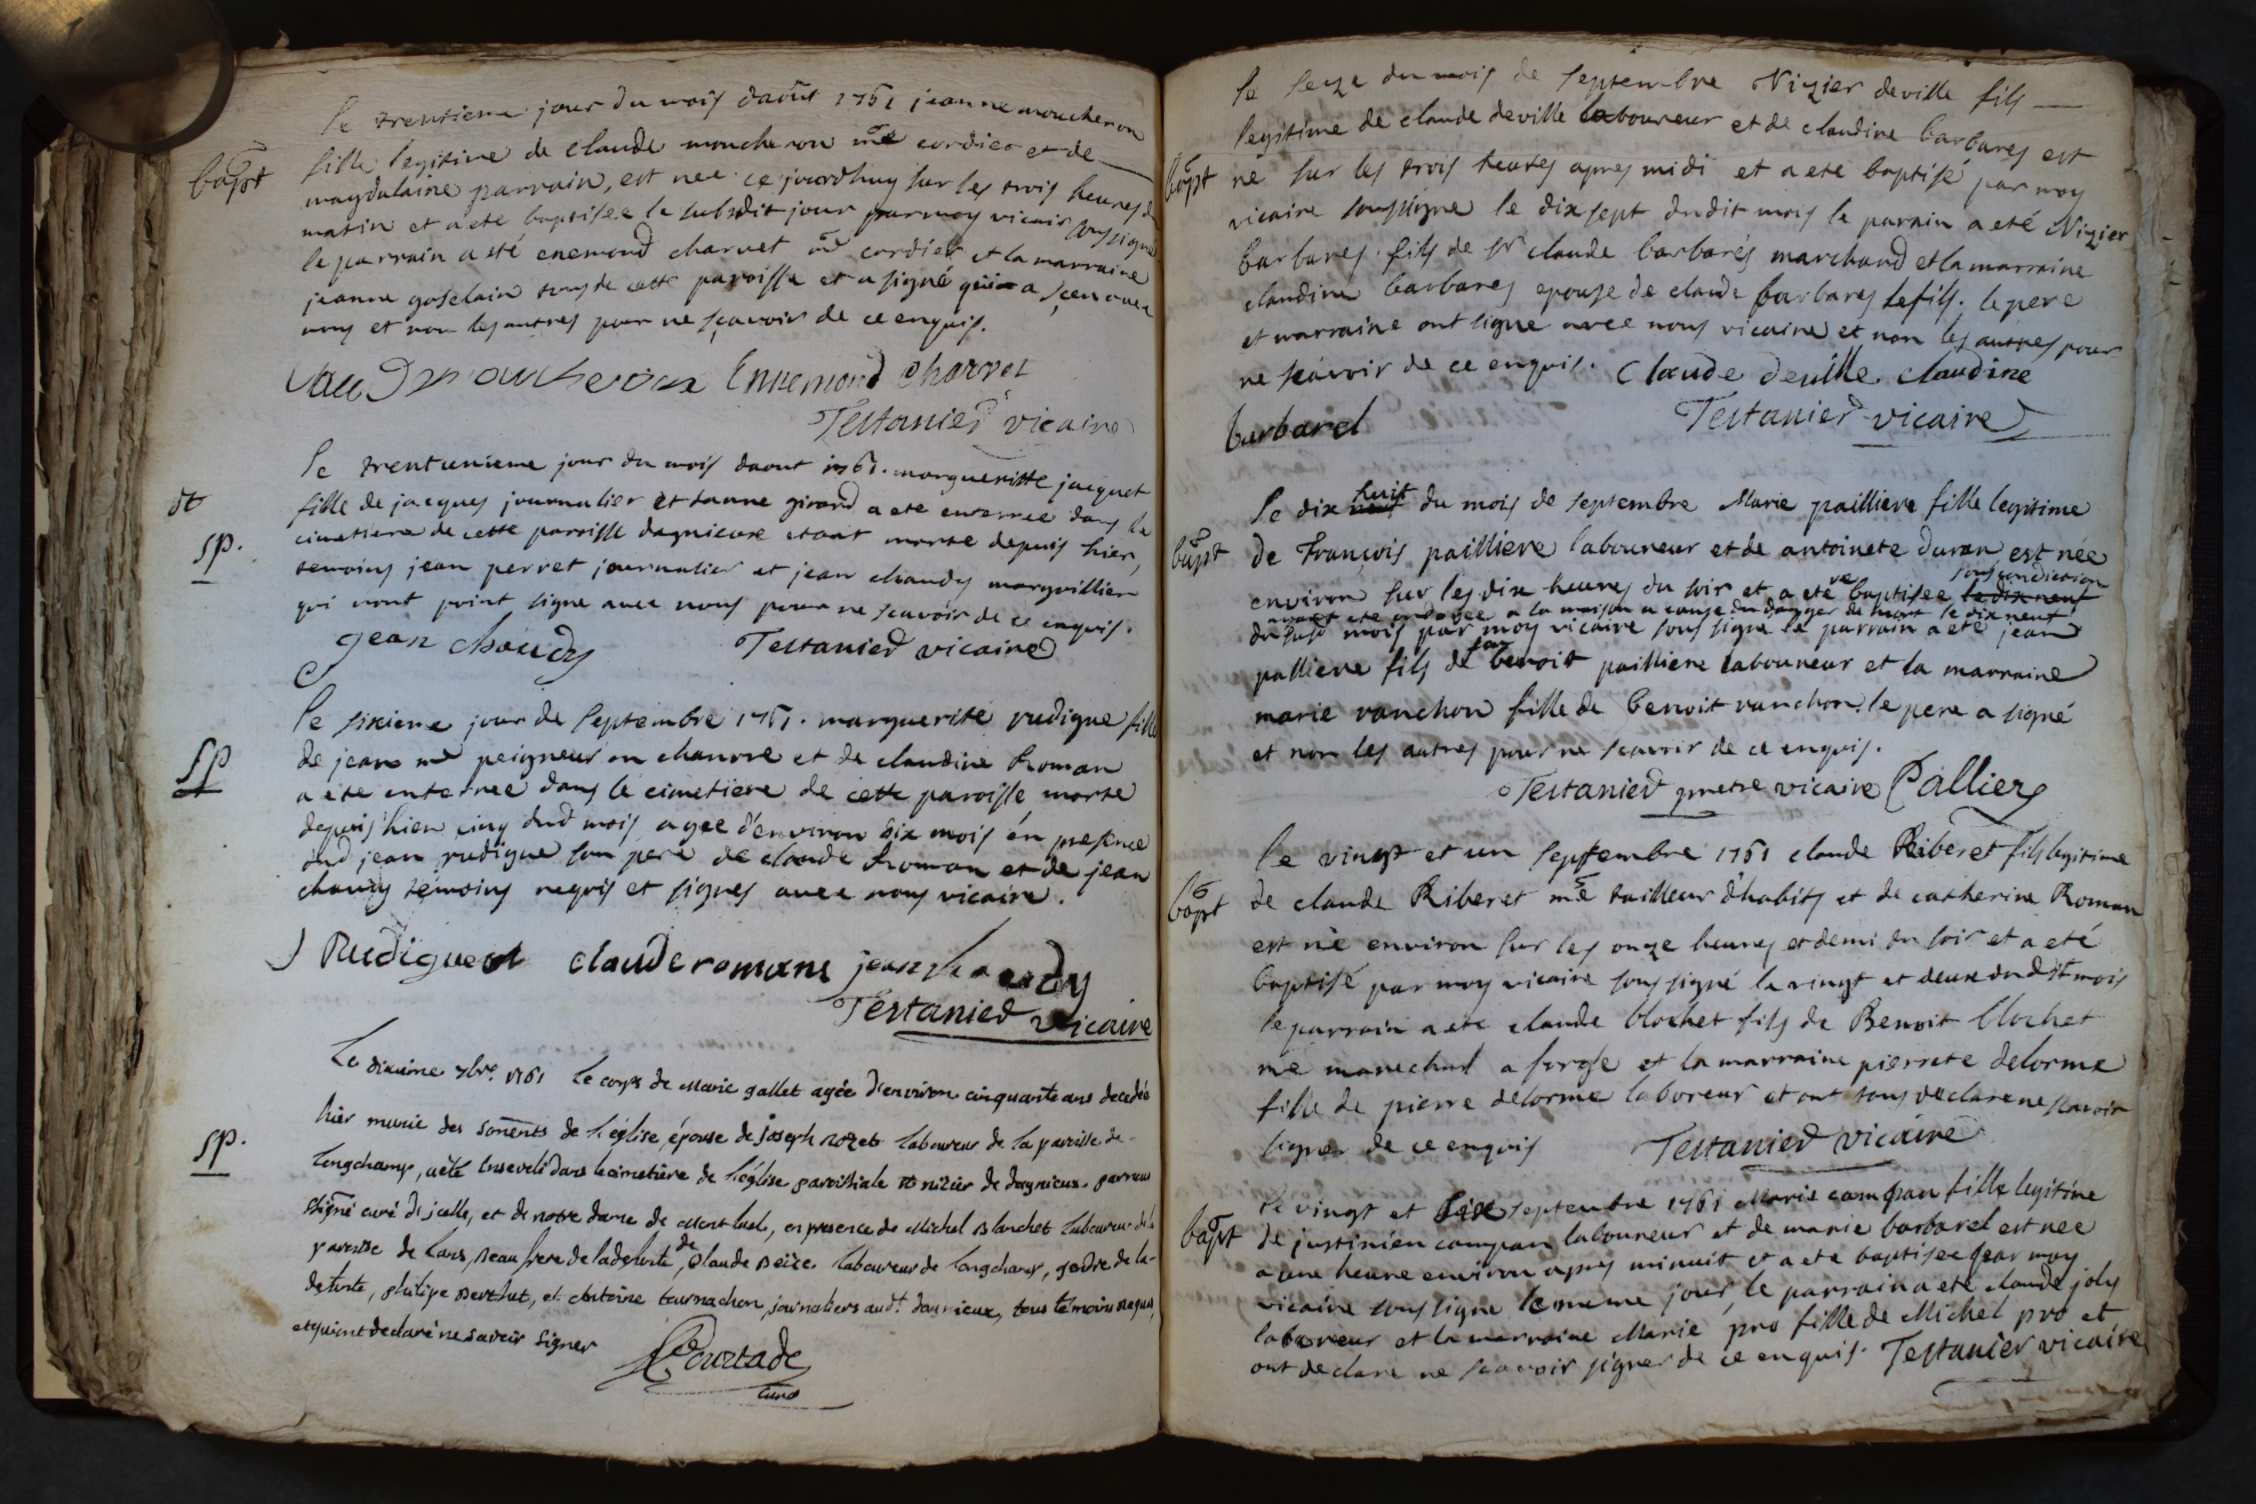 le trentieme jour du mois daoût 1761 jeanne moucheron
bapt
fille legitime de claude moucheron me cordier et de
magdalaine parrain, est nee ce jourdhuy sur les trois heures du
matin et a ete baptisee le susdit jour par moy vicair soussigné
le parrain a eté enemond charvet me cordier et la marraine
jeanne goselain tous de cette paroisse et a signé qui a sçeu avec
nous et non les autres pour ne sçavoir de ce enquis.
moucheron Ennemond Charvet
Testanier vicaire
le trentunieme jour du mois daout 1761. margueritte jacquet
dt
sp.
fille de jacques journalier et jeanne girand a ete enterree dans le
cimetiere de cette paroisse dagnieux etant morte depuis hier,
temoins jean perret journalier et jean chaudy marguillier
qui nont point signe avec nous pour ne scavoir de ce enquis.
jean choudy Testanier vicaire
le sixieme jour de septembre 1761. marguerite rudigue fille
sp
de jean me peigneur en chanvre et de claudine Roman
a ete enterree dans le cimetiere de cette paroisse morte
depuis hier cinq dud mois, agee d'environ six mois en presence
dud jean rudigue son pere de claude Roman et de jean
chaudy temoins requis et signes avec nous vicaire.
J Rudigue claude romans jean chaudy
Testanier vicaire
Le dixieme 7bre. 1761 le corps de Marie gallet agée d'environ cinquante ans decedée
hier munie des sacremts de l'église, épouse de joseph rozet laboureur de la paroisse de
sp.
Longchamp, a été Inseveli dans le cimetière de l'église paroissiale st nizier de dagnieux. par nous
ssigné curé d'jcelle, et de notre dame de Mont luel, en presence de Michel Blanchet laboureur de la
paroisse de beau frere de la defunte, de Claude Beize laboureur de Longchamp, gendre de la
defunte, philipe Berthet, et Antoine tournachon, journaliers audt. dagnieux, tous témoins requis,
et qui ont declaré ne savoir signer
Courtade
curé
le seize du mois de septembre Nizier deville fils
legitime de claude deville laboureur et de claudine barbares est
bapt
né sur les trois heures apres midi et a ete baptisé par moy
vicaire soussigné le dix sept dudit mois le parain a eté Nizier
barbares fils de sr claude barbarés marchand et la marraine
claudine barbares epouse de claude barbares le fils. le pere
et marraine ont signe avec nous vicaire et non les autres pour
ne scavoir de ce enquis. Claude deville claudine
barbarel Testanier vicaire
le dix huit du mois de septembre Marie pailliere fille legitime
bapt
de François pailliere laboureur et de antoinete duran est née
environ sur les dix heures du soir et a eté baptisee sous condiction le dix neuf
ayant ete ondoyee a la maison a cause du danger de mort le dix neuf
du susd mois par moy vicaire sous signe le parrain a eté jean
palliere fils de benoit pailliere laboureur et la marraine
marie vanchon fille de benoit vanchon. le pere a signé
et non les autres pour ne scavoir de ce enquis.
Testanier pretre vicaire Palliere
le vingt et un septembre 1761 claude Riberet fils legitime
bapt
de claude Riberet me tailleur d'habits et de catherine Roman
est né environ sur les onze heures et demi du soir et a eté
baptisé par moy vicaire sous signé le vingt et deux dudit mois
le parrain a ete claude blochet fils de Benoit blochet
me marechal a forge et la marraine pierrete delorme
fille de pierre delorme laboreur et ont tous declare ne scavoir
signer de ce enquis Testanier vicaire
le vingt et six septembre 1761 Marie campan fille legitime
bapt
de justinien campan laboureur et de marie barbarel est nee
a une heure environ apres minuit et a ete baptisee par moy
vicaire sous signe le meme jour, le parrain a ete claude joly
laboreur et la marraine Marie pro fille de Michel pro et
ont declare ne scavoir signer de ce enquis. Testanier vicaire